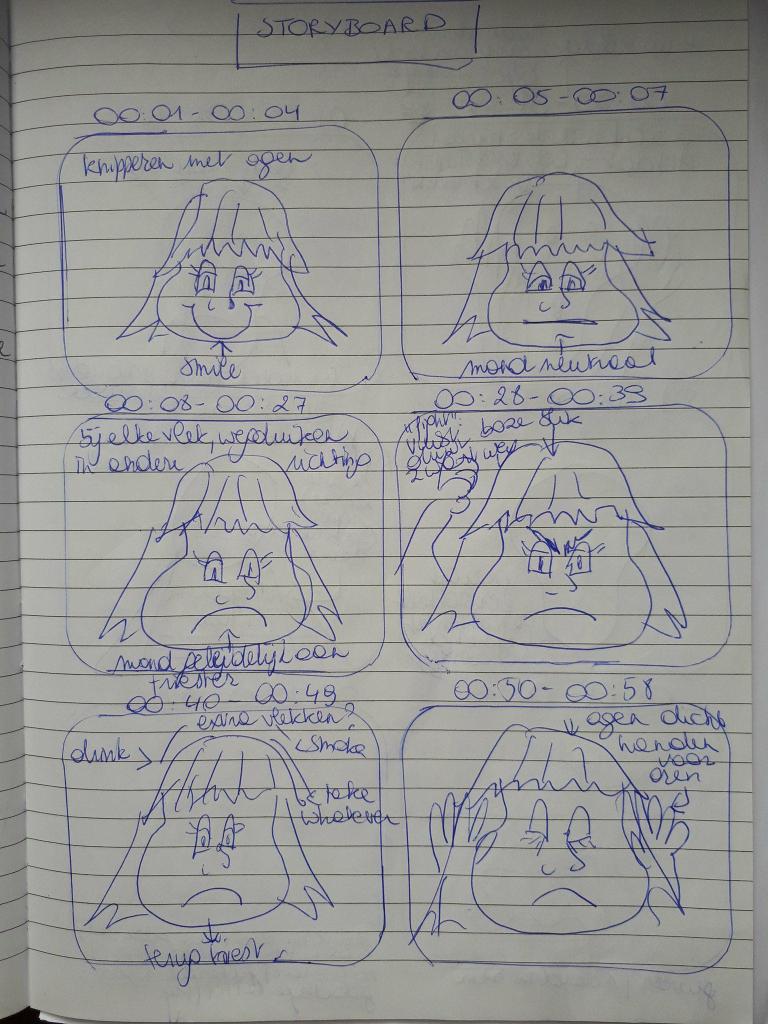 STORYBOARD
00:01 - 00:04
knipperen met ogen
smile
00:05 - 00:07
mond neutraal
00:08 - 00:27
Bij elke vlek, wegduiken
in andere richting
mond geleidelijk aan
triester
00:28 - 00:39
boze blik
weg
00:40 - 00:49
extra vlekken?
drink
smoke
take
whatever
terug triest
00:50 - 00:58
ogen dicht
handen
voor
oren